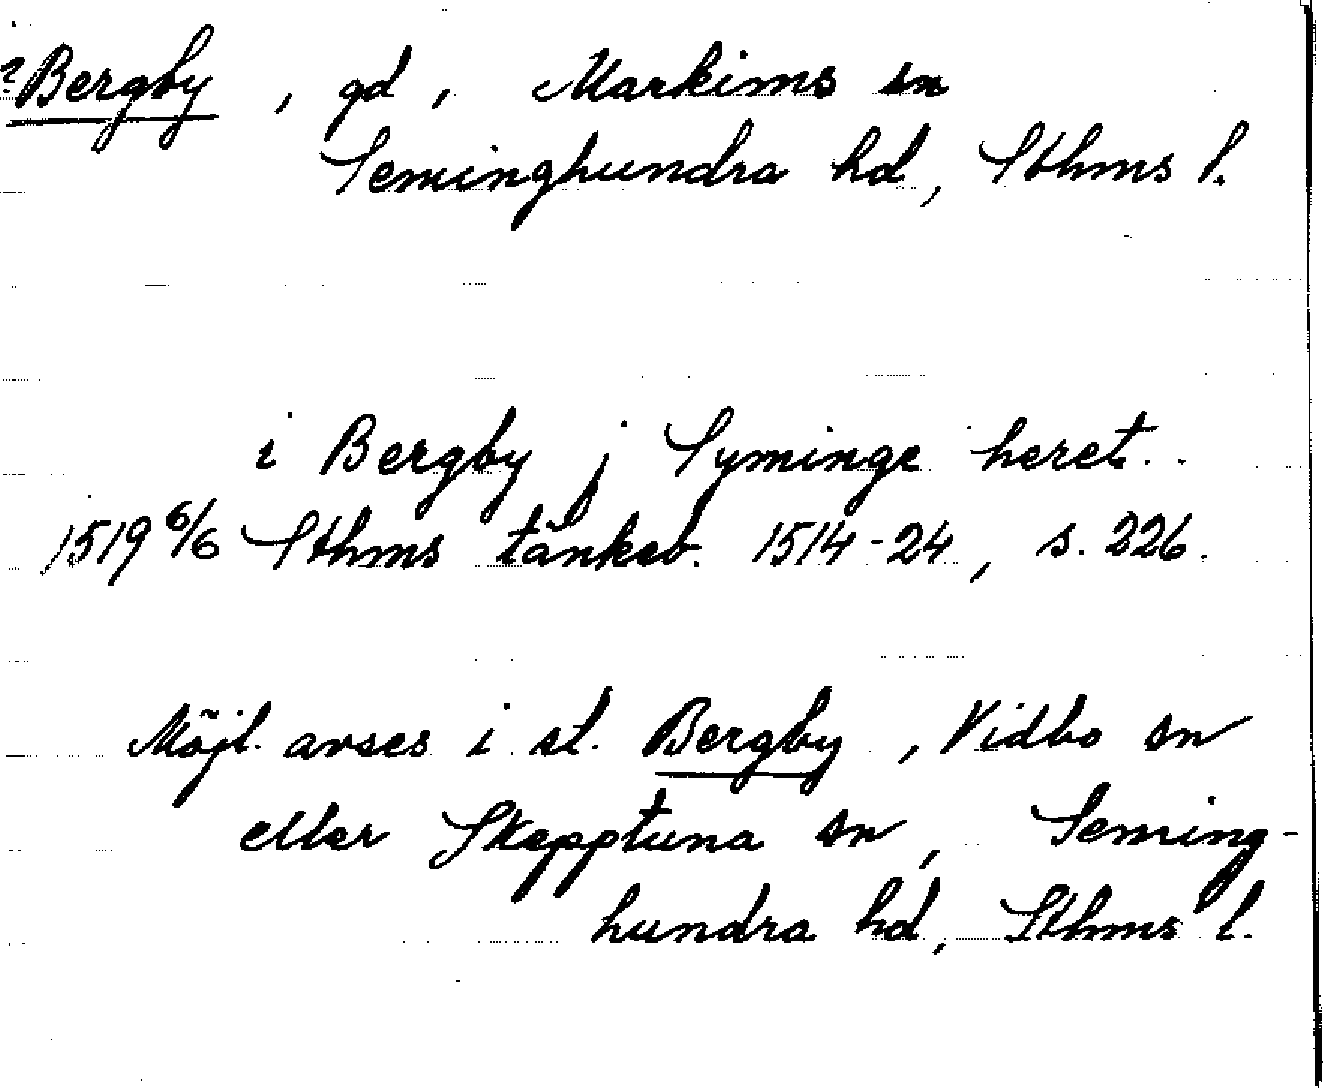 ?Bergby, gd, Markims sn
Seminghundra hd, Sthms l.
i Bergby j Syminge heret..
1519 6/6 Sthms tänkeb. 1514-24, s. 226.
Möjl. avses i st. Bergby, Vidbo sn
eller Skepptuna sn, Seming-
hundra hd, Sthms l.